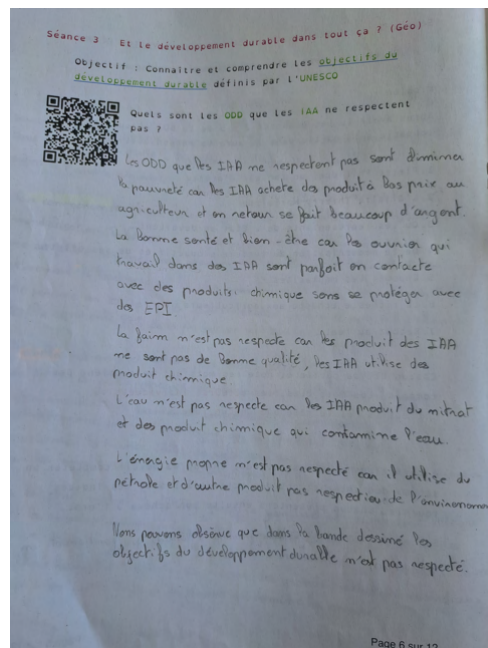 Séance 3 Et le développement durable dans tout ça ? (Géo)
Objectif : Connaitre et comprendre les objectifs du
développement durable définis par l'UNESCO
Quels sont les ODD que les IAA ne respectent
pas ?
Les ODD que les IAA ne respectent pas sont diminuer
la pauvreté car les IAA achete des produit à Bas prix au
agriculteur et en retour se fait beaucoup d'argent.
La Bonne santé et bien-être car les ouvrier qui
travail dans des IAA sont parfoit en contacte
avec des produits chimique sans se protéger avec
des EPI
La faim n'est pas respecte car les produit des IAA
ne sont pas de Bonne qualité, les IAA utilise des
produit chimique.
L'eau n'est pas respecte car les IAA produit du nitrat
et des produit chimique qui contamine l'eau.
L'énergie propre n'est pas respecté car il utilise du
pétrole et d'autre produit pas de l'environnem
Nous pouvons observe que dans la bande dessiné les
objectifs du développement durable n'est pas respecté.
Page 6 sur 12